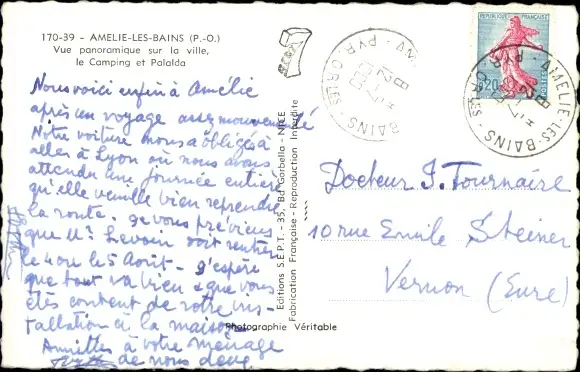 170-39 - AMELIE-LES-BAINS (P.-O.)
Vue panoramique sur la ville,
le Camping et Palalda
Nous voici enfin à Amélie
après un voyage assez mouvementé
Notre voiture nous a obligés à
aller à Lyon où nous avons
attendu une journée entière
qu'elle veuille bien reprendre
la route. Je vous préviens
que Mr Levain soit rentré
le 4 ou le 5 Août - J'espère
que tout va bien & que vous
êtes content de votre ins-
tallation à la maison
Amitiés à votre ménage
de nous deux
Editions S.E.P.T. - 35, Bd Gorbella - NICE
Fabrication Française - Reproduction Interdite
Photographie Véritable
REPUBLIQUE FRANÇAISE
0,20
POSTES
AMELIE-LES-BAINS
PYR. ORLES
Docteur J. Tournaire
10 rue Emile Steiner
Vernon (Eure)